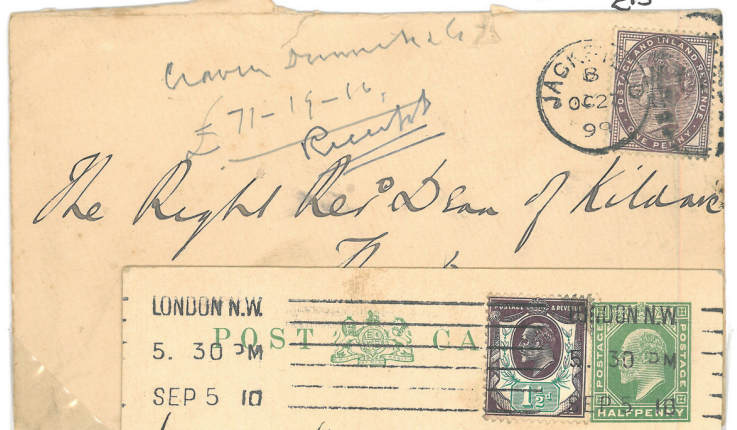 £ 71-19-10,
JACKS
B
OC27
99
POSTAGE AND INLAND REVENUE
ONE PENNY
The Right Revd Dean of Kildare
LONDON N.W.
5. 30 PM
SEP 5 10
POST CA
POSTAGE & REVENUE
1½d
LONDON N.W.
5. 30 PM
SEP 5 10
POSTAGE
POSTAGE
HALFPENNY